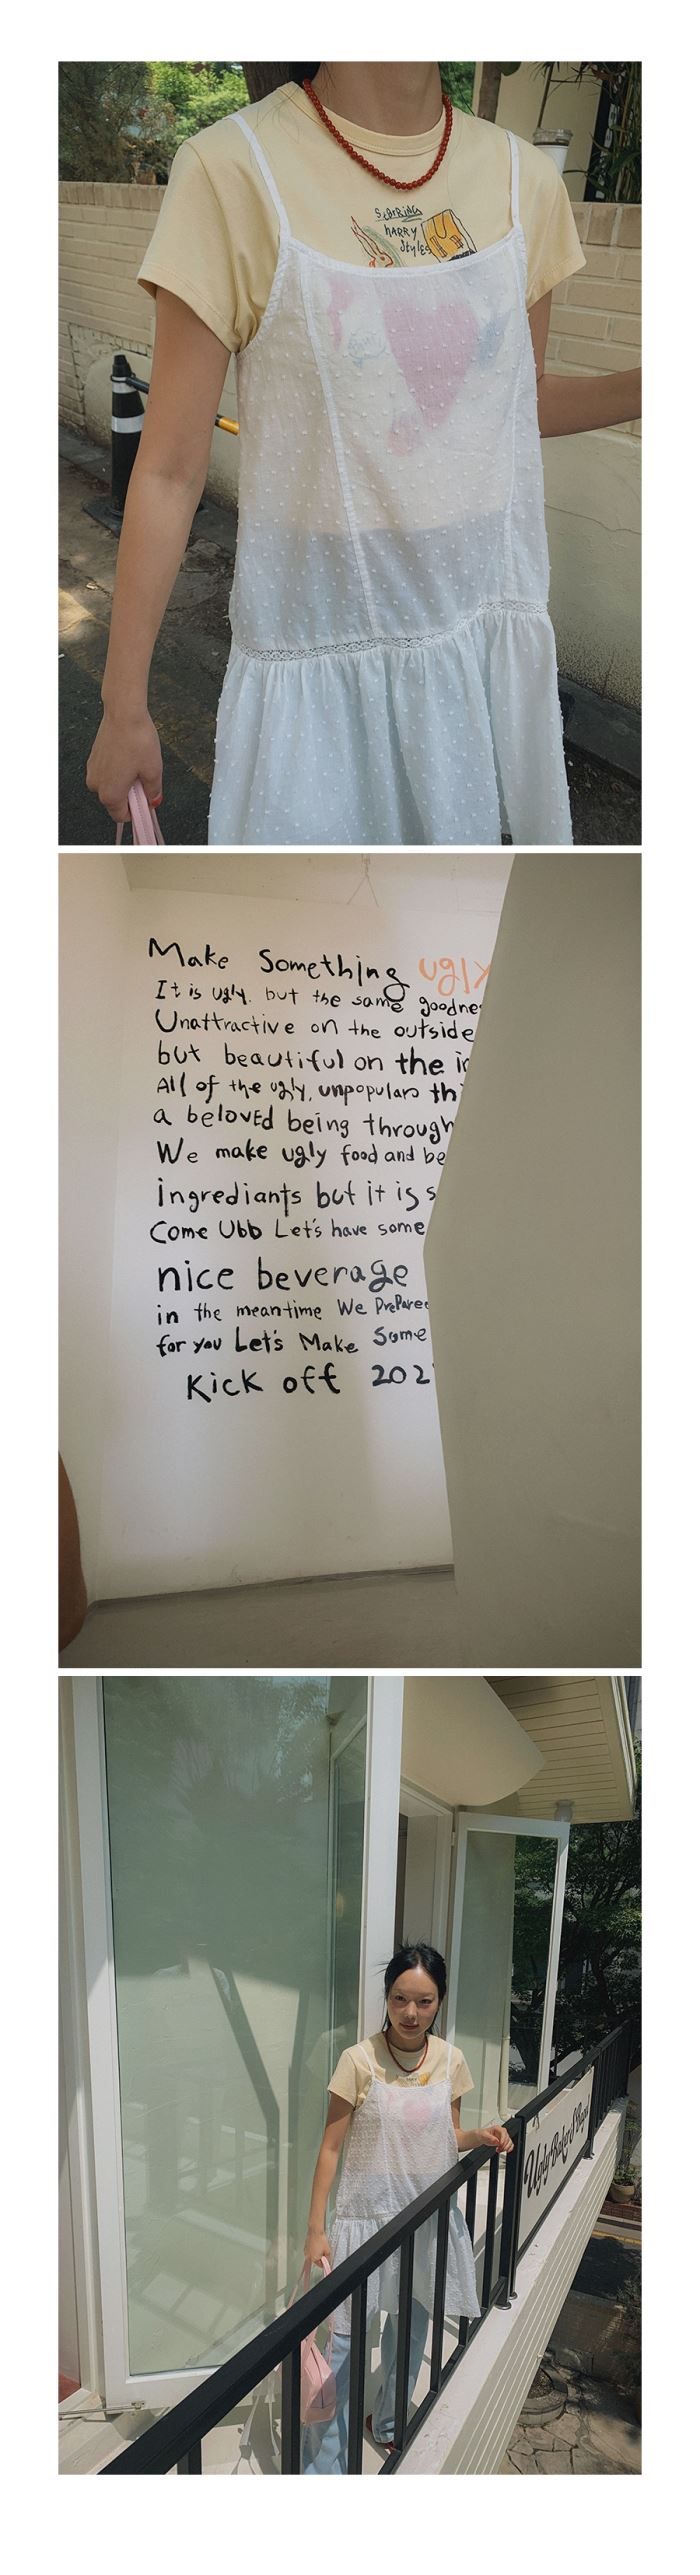 STARRING
HARRY
Styles
Make Something ugly
It is ugly. but the same
Unattractive on the outside
but beautiful on the
All of the ugly, unpopulars
a beloved being through
We make ugly food and
ingrediants but it is
Come Ubb Let's have some
nice beverage
in the meantime We
for you Let's Make Some
Kick off
Ugly Baker's